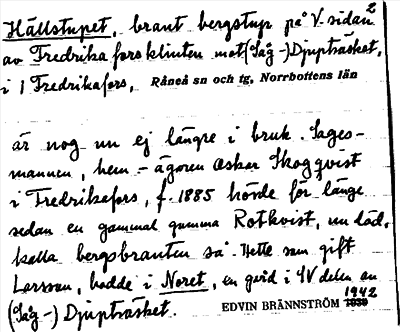 2
Hällstupet, brant bergstup på V. sidan
av Fredrikaforsklinten mot (Såg-)Djupträsket,
i 1 Fredrikafors, Råneå sn och tg, Norrbottens län
är nog nu ej längre i bruk. Sages-
mannen, hem.-ägaren Oskar Skogqvist
i Fredrikafors, f. 1885 hörde för länge
sedan en gammal gumma Rotkvist, nu död,
kalla bergsbranten så. Hette som gift
Larsson, bodde i Noret, en gård i SV delen av
(Såg-) Djupträsket.
EDVIN BRÄNNSTRÖM 1942